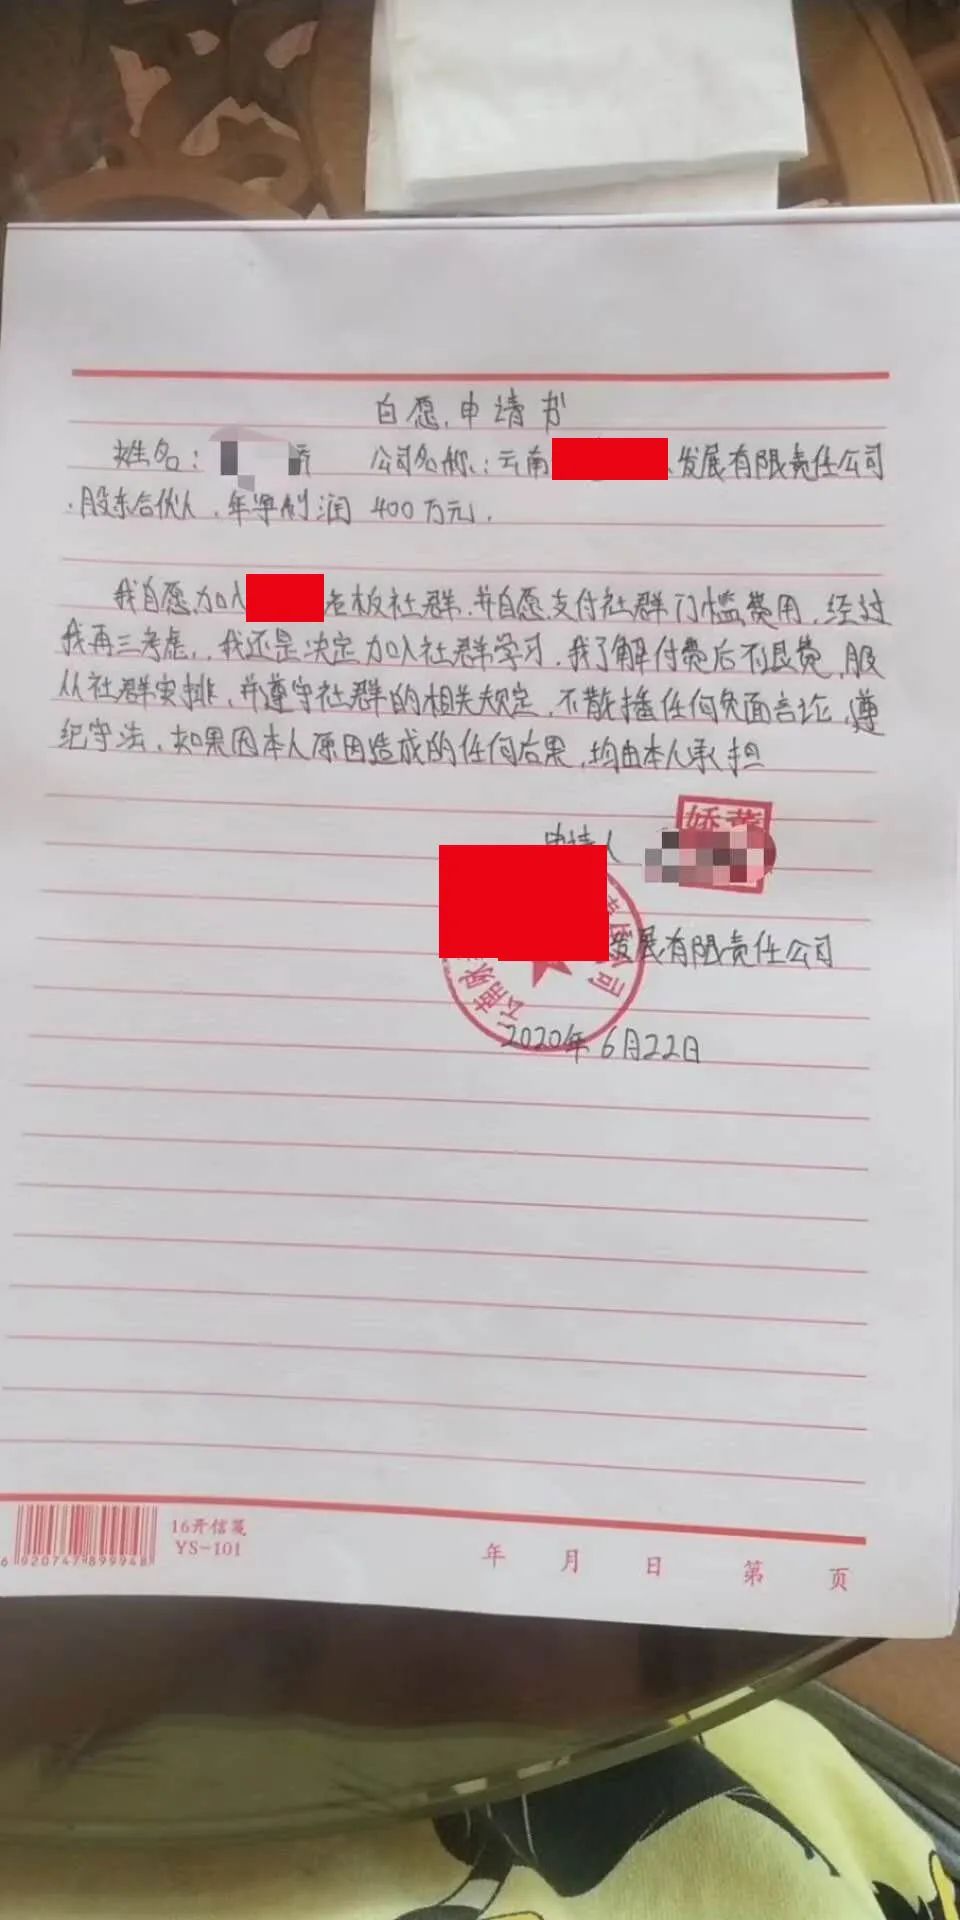 自愿申请书
姓名： 公司名称：云南 发展有限责任公司
股东合伙人，年净利润 400万元。
我自愿加入 老板社群，并自愿支付社群门槛费用，经过
我再三考虑，我还是决定加入社群学习，我了解付费后不退费，服
从社群安排，并遵守社群的相关规定，不散播任何负面言论，遵
纪守法，如果因本人原因造成的任何后果，均由本人承担
申请人
发展有限责任公司
2020年6月22日
16开信笺
YS-101
6 920747 899948
年 月 日 第 页